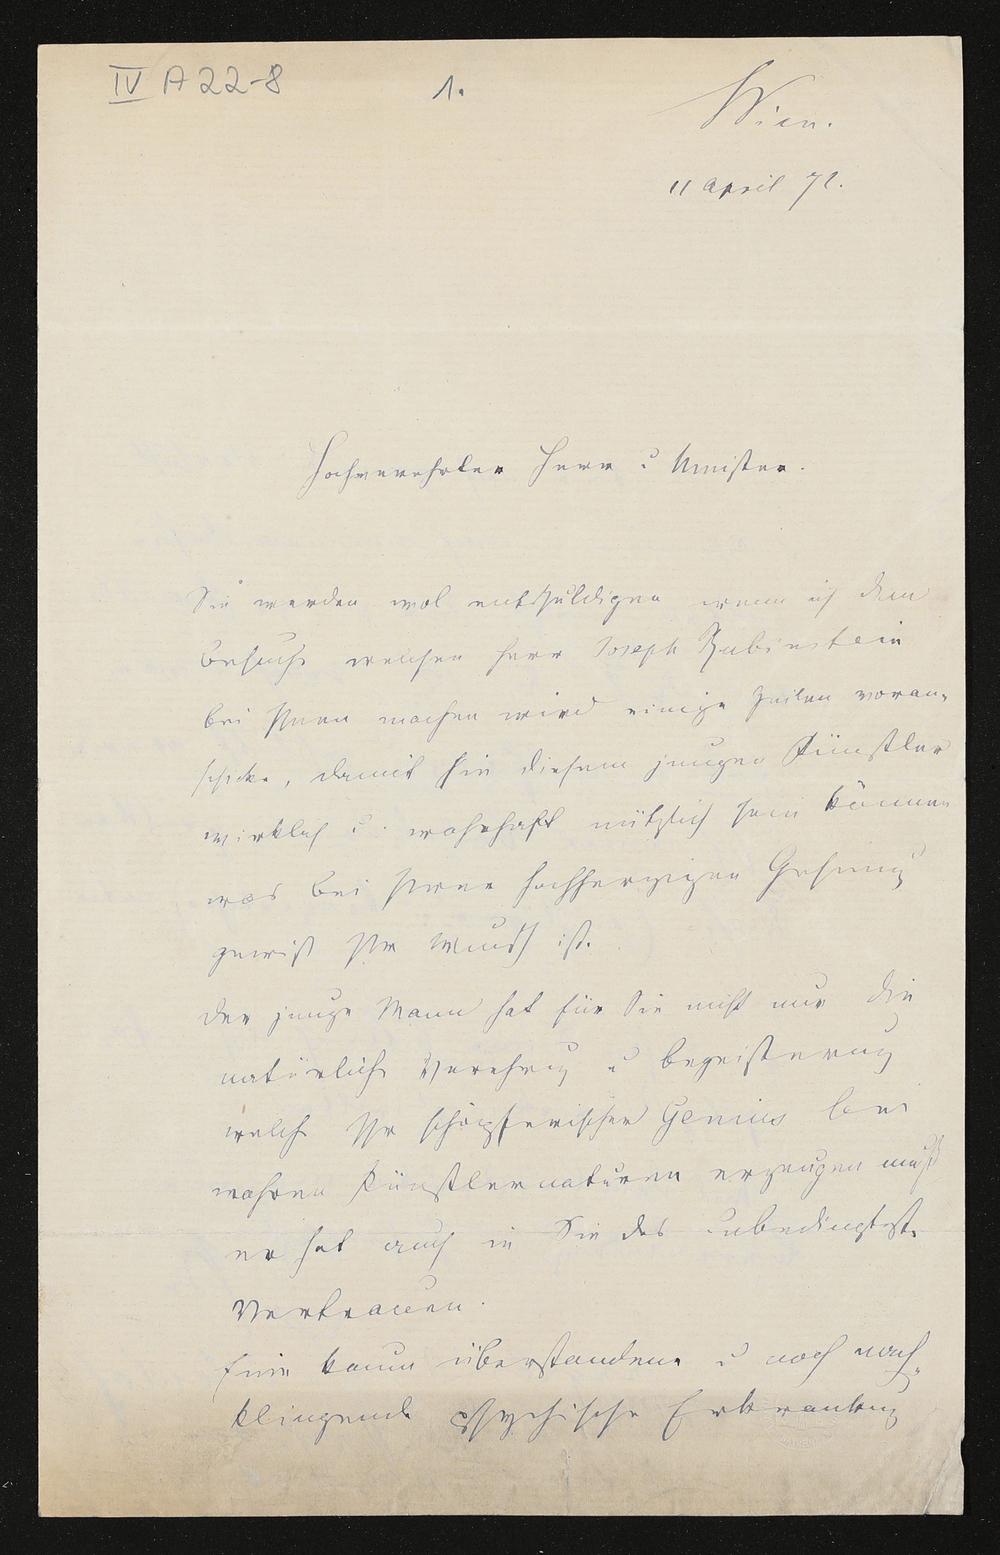 IV A 22-8
1.
Wien.
11 April 72.
Hochverehrter Herr u Meister.
Sie werden wol entschuldigen wenn ich dem
Besuche welchen Herr Joseph Rubinstein
bei Ihnen machen wird einige Zeilen voran-
schicke, damit Sie diesem jungen Künstler
wirklich u. wahrhaft nützlich sein können
was bei Ihrer hochherzigen Gesinnung
gewiß Ihr Wunsch ist.
Der junge Mann hat für Sie nicht nur die
natürliche Verehrung u Begeisterung
welche Ihr schöpferischer Genius bei
wahren Künstlernaturen erzeugen muß
er hat auch in Sie das unbedingteste
Vertrauen.
Eine kaum überstandene u noch nach-
klingende psychische Erkrankung